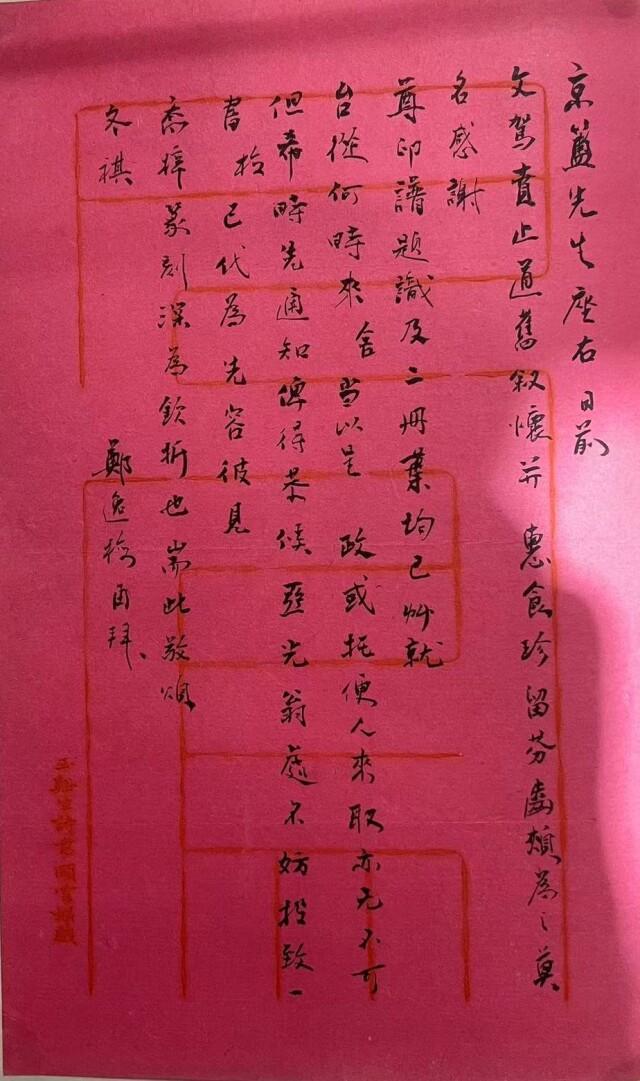 京盦先生座右日前
文駕賁止道舊叙懷并惠食珍留芬齒頰為之莫
名感謝
尊印譜題識及二冊葉均已艸就
台從何時來舍當以呈政或托便人來取亦无不可
但希時先通知俾得恭候亞光翁處不妨投致一
書柃已代為先容彼見
喬梓篆刻深為欽折也耑此敬頌
冬祺
鄭逸梅甬拜